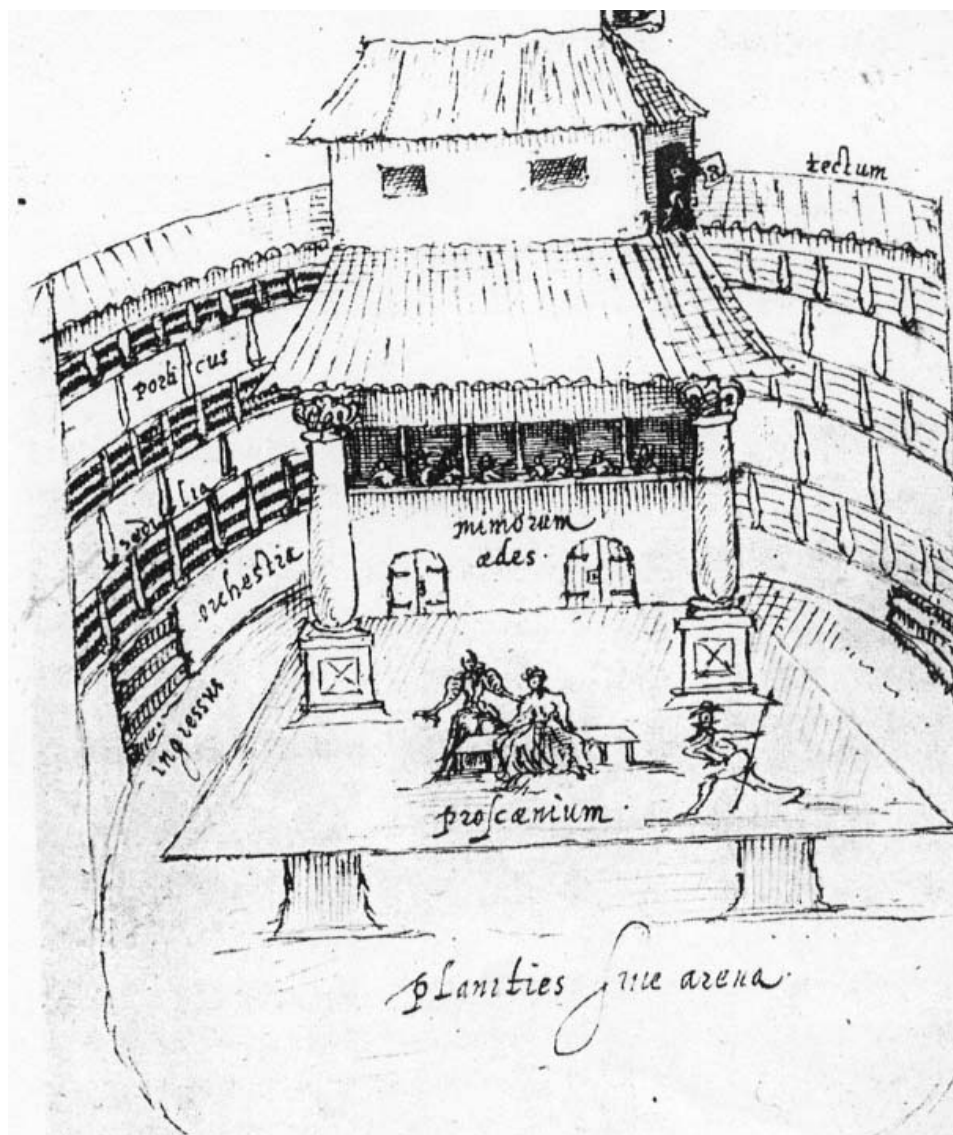 tectum
porticus
sedilia
orchestra
mimorum
ædes.
ingressus
proſcænium.
planities ſive arena.